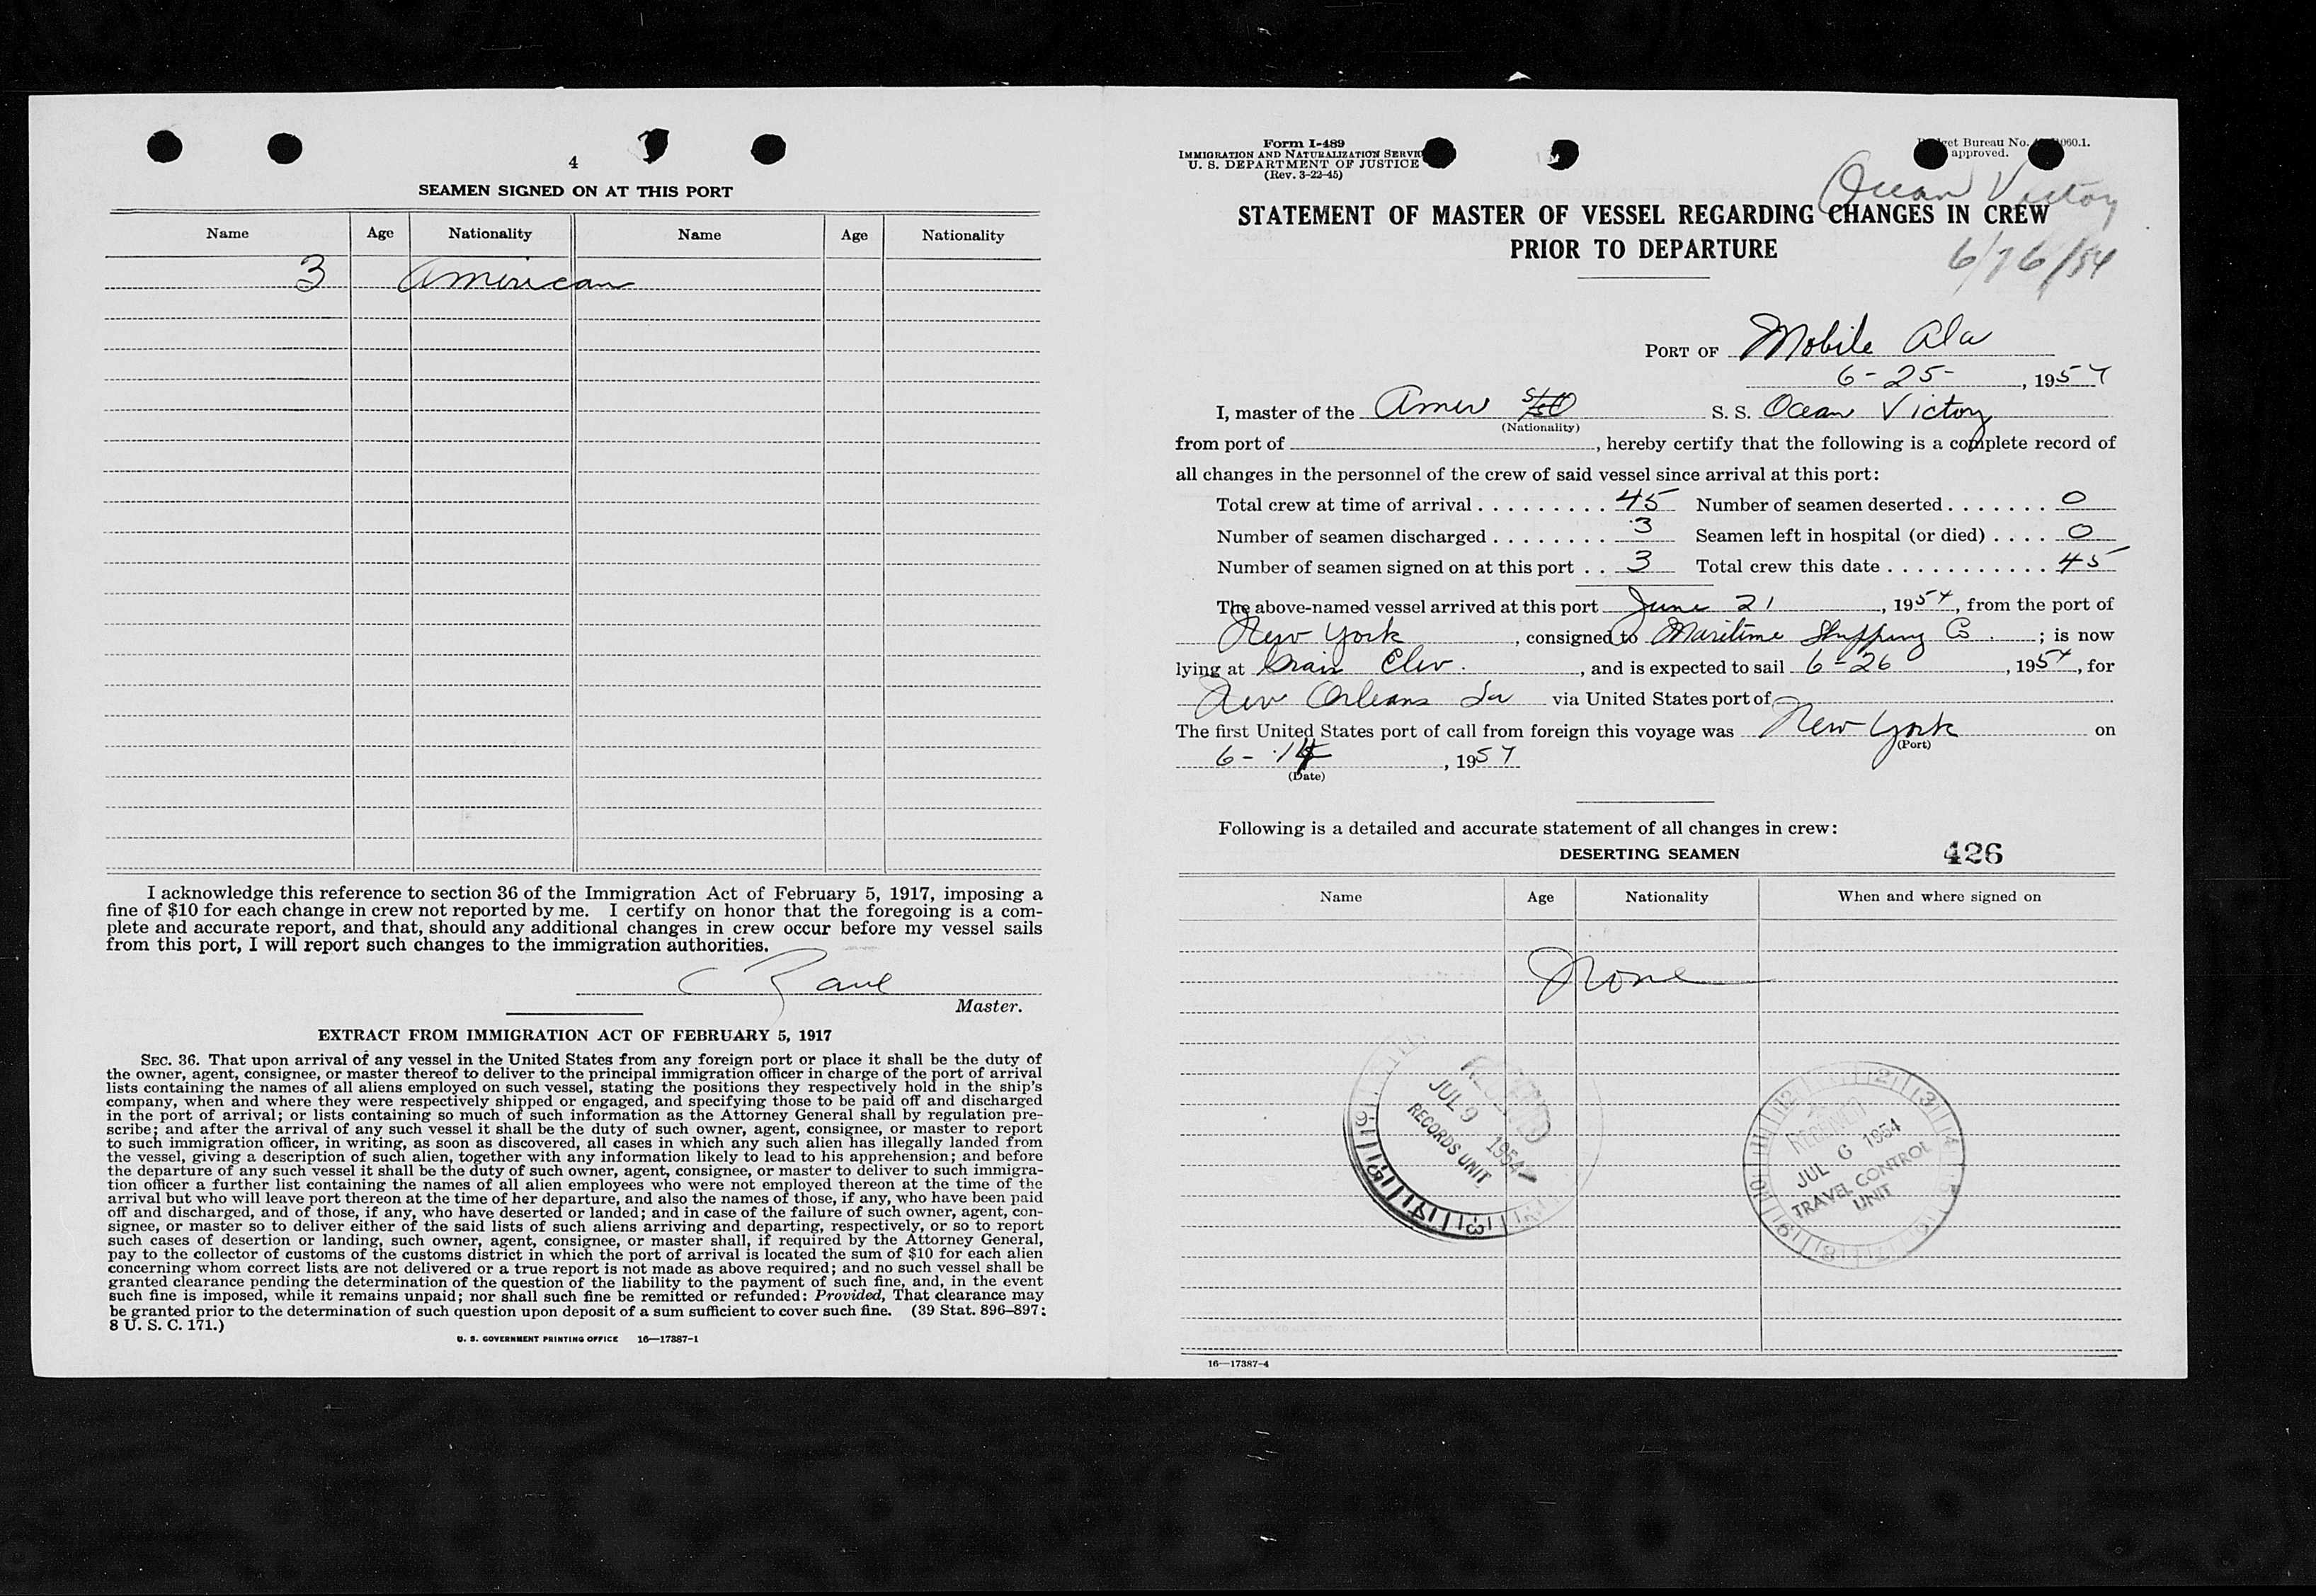 4
SEAMEN SIGNED ON AT THIS PORT
Name Age Nationality Name Age Nationality
3 American
I acknowledge this reference to section 36 of the Immigration Act of February 5, 1917, imposing a
fine of $10 for each change in crew not reported by me. I certify on honor that the foregoing is a com-
plete and accurate report, and that, should any additional changes in crew occur before my vessel sails
from this port, I will report such changes to the immigration authorities.
Master.
EXTRACT FROM IMMIGRATION ACT OF FEBRUARY 5, 1917
SEC. 36. That upon arrival of any vessel in the United States from any foreign port or place it shall be the duty of
the owner, agent, consignee, or master thereof to deliver to the principal immigration officer in charge of the port of arrival
lists containing the names of all aliens employed on such vessel, stating the positions they respectively hold in the ship's
company, when and where they were respectively shipped or engaged, and specifying those to be paid off and discharged
in the port of arrival; or lists containing so much of such information as the Attorney General shall by regulation pre-
scribe; and after the arrival of any such vessel it shall be the duty of such owner, agent, consignee, or master to report
to such immigration officer, in writing, as soon as discovered, all cases in which any such alien has illegally landed from
the vessel, giving a description of such alien, together with any information likely to lead to his apprehension; and before
the departure of any such vessel it shall be the duty of such owner, agent, consignee, or master to deliver to such immigra-
tion officer a further list containing the names of all alien employees who were not employed thereon at the time of the
arrival but who will leave port thereon at the time of her departure, and also the names of those, if any, who have been paid
off and discharged, and of those, if any, who have deserted or landed; and in case of the failure of such owner, agent, con-
signee, or master so to deliver either of the said lists of such aliens arriving and departing, respectively, or so to report
such cases of desertion or landing, such owner, agent, consignee, or master shall, if required by the Attorney General,
pay to the collector of customs of the customs district in which the port of arrival is located the sum of $10 for each alien
concerning whom correct lists are not delivered or a true report is not made as above required; and no such vessel shall be
granted clearance pending the determination of the question of the liability to the payment of such fine, and, in the event
such fine is imposed, while it remains unpaid; nor shall such fine be remitted or refunded: Provided, That clearance may
be granted prior to the determination of such question upon deposit of a sum sufficient to cover such fine. (39 Stat. 896–897;
8 U. S. C. 171.)
U. S. GOVERNMENT PRINTING OFFICE 16—17387-1
Form I-489
IMMIGRATION AND NATURALIZATION SERVIC
U. S. DEPARTMENT OF JUSTICE
(Rev. 3-22-45)
et Bureau No. 060.1.
approved.
Ocean Victory
6/16/54
STATEMENT OF MASTER OF VESSEL REGARDING CHANGES IN CREW
PRIOR TO DEPARTURE
PORT OF Mobile Ala
6-25-, 1954
I, master of the Amer S. S. Ocean Victory
(Nationality)
from port of , hereby certify that the following is a complete record of
all changes in the personnel of the crew of said vessel since arrival at this port:
Total crew at time of arrival . . . . . . . . . 45 Number of seamen deserted . . . . . . . 0
Number of seamen discharged . . . . . . . . 3 Seamen left in hospital (or died) . . . . 0
Number of seamen signed on at this port . . 3 Total crew this date . . . . . . . . . . . 45
The above-named vessel arrived at this port June 21, 1954, from the port of
New York, consigned to Maritime Shipping Co. ; is now
lying at Grain Elev., and is expected to sail 6-26, 1954, for
New Orleans La via United States port of
The first United States port of call from foreign this voyage was New York on
(Port)
6-14, 1954
(Date)
Following is a detailed and accurate statement of all changes in crew:
DESERTING SEAMEN 426
Name Age Nationality When and where signed on
None
RECEIVED
JUL 9 1954
RECORDS UNIT
RECEIVED
JUL 6 1954
TRAVEL CONTROL
UNIT
16—17387-4